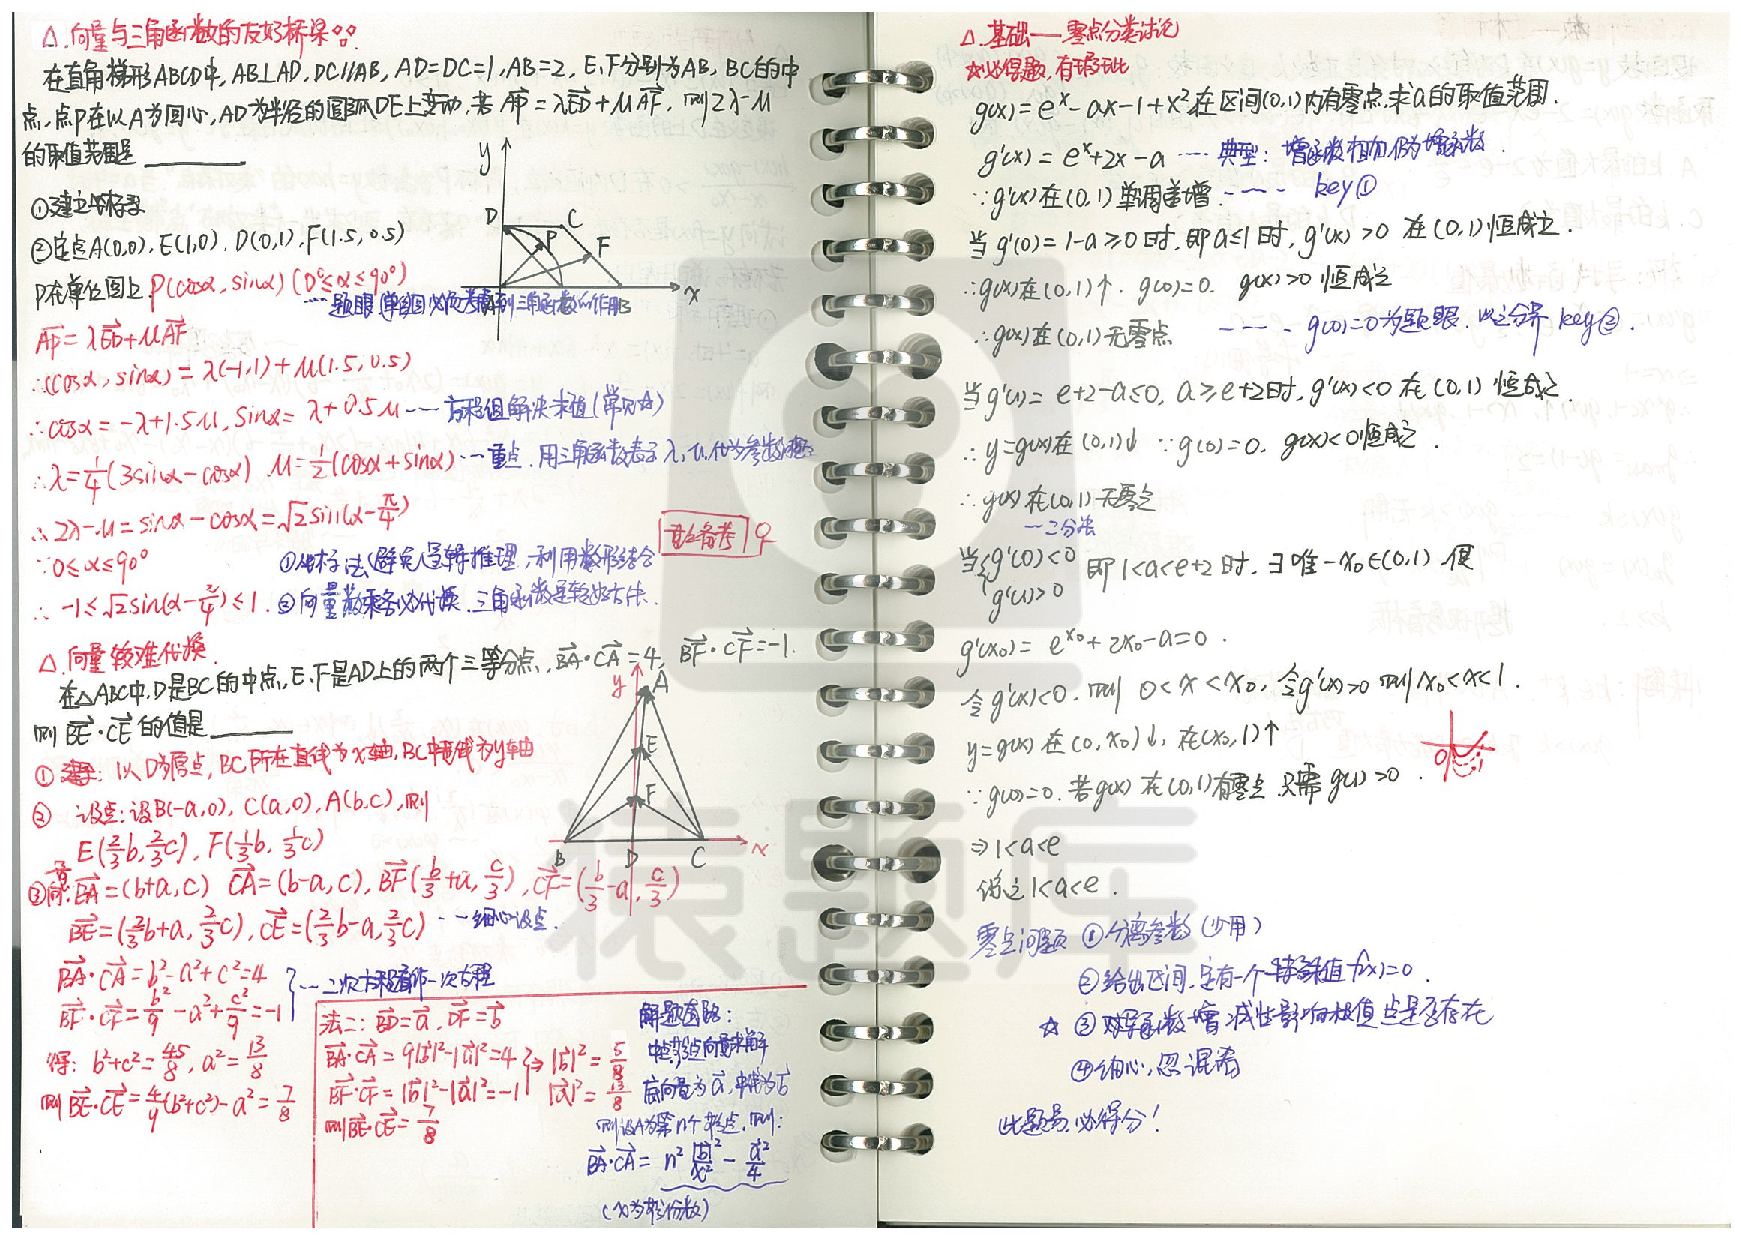 △.向量与三角函数的友好桥梁
在直角梯形ABCD中,AB⊥AD,DC∥AB,AD=DC=1,AB=2,E,F分别为AB,BC的中
点,点P在以A为圆心,AD为半径的圆弧DE上变动,若AP=λED+μAF,则2λ-μ
的取值范围是
y
D
C
P
F
B
x
①建立坐标系
②定点A(0,0),E(1,0),D(0,1),F(1.5,0.5)
P在单位圆上,P(cosα,sinα)(0°≤α≤90°)
AP=λED+μAF
∴(cosα,sinα)=λ(-1,1)+μ(1.5,0.5)
∴cosα=-λ+1.5μ,sinα=λ+0.5μ---方程组解决求值(常见☆)
∴λ=1/4(3sinα-cosα) μ=1/2(cosα+sinα)---重点.用三角函数表示λ,μ,
∴2λ-μ=sinα-cosα=√2sin(α-π/4)
∵0≤α≤90°
∴-1≤√2sin(α-π/4)≤1.
①坐标法(避免逻辑推理,利用数形结合
△.向量较难代换.
在△ABC中,D是BC的中点,E,F是AD上的两个三等分点,BA·CA=4,BF·CF=-1.
则BE·CE的值是
y
A
E
F
B
D
C
x
①建系:以D为原点,BC所在直线为x轴,BC中垂线为y轴
② 设点:设B(-a,0),C(a,0),A(b,c),则
E(2/3b,2/3c),F(1/3b,1/3c)
③向量:BA=(b+a,c) CA=(b-a,c),BF(b/3+a,c/3),CF=(b/3-a,c/3)
BE=(2/3b+a,2/3c),CE=(2/3b-a,2/3c)---细心设点.
BA·CA=b²-a²+c²=4
BF·CF=b²/9-a²+c²/9=-1
---二次方程看作一次方程
得:b²+c²=45/8,a²=13/8
则BE·CE=4/9(b²+c²)-a²=7/8
法二:BD=a,DF=b
BA·CA=9|b|²-|a|²=4
BF·CF=|b|²-|a|²=-1
⇒|b|²=5/8
|a|²=13/8
则BE·CE=7/8
解题套路:
BA·CA=n²|b|²/x²-a²/4
△.基础——零点分类讨论
☆必得题,
g(x)=eˣ-ax-1+x²在区间(0,1)内有零点,求a的取值范围.
g'(x)=eˣ+2x-a---典型:增函数相加仍为增函数
∵g'(x)在(0,1)单调递增.---- key①
当g'(0)=1-a≥0时,即a≤1时,g'(x)>0 在(0,1)恒成立.
∴g(x)在(0,1)↑.g(0)=0. g(x)>0恒成立
∴g(x)在(0,1)无零点 ----g(0)=0为题眼.以之分界 key②.
当g'(1)=e+2-a≤0,a≥e+2时,g'(x)<0在(0,1)恒成立.
∴y=g(x)在(0,1)↓ ∵g(0)=0,g(x)<0恒成立.
∴g(x)在(0,1)无零点
---二分法
当{g'(0)<0
g'(1)>0
即1<a<e+2时,∃唯一x₀∈(0,1).使
g'(x₀)=e^x₀+2x₀-a=0.
令g'(x)<0,则0<x<x₀,令g'(x)>0则x₀<x<1.
y=g(x)在(0,x₀)↓,在(x₀,1)↑
∵g(0)=0.若g(x)在(0,1)有零点,只需g(1)>0.
⇒1<a<e
综上1<a<e.
零点问题 ①分离参数(少用)
②给出区间,定有一个特殊值f(x)=0.
☆③对导函数增减性影响极值点是否存在
④细心,忽混淆
此题易,必得分!
猿题库